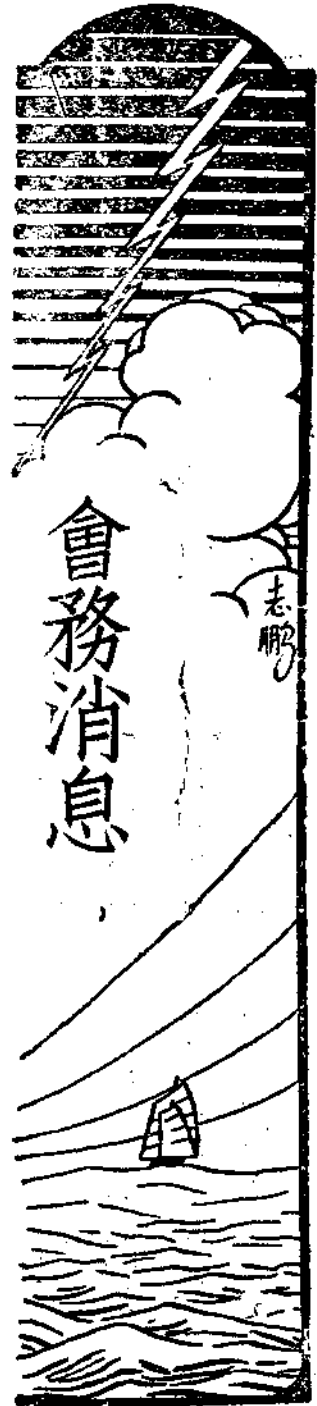 會務消息
志鵬